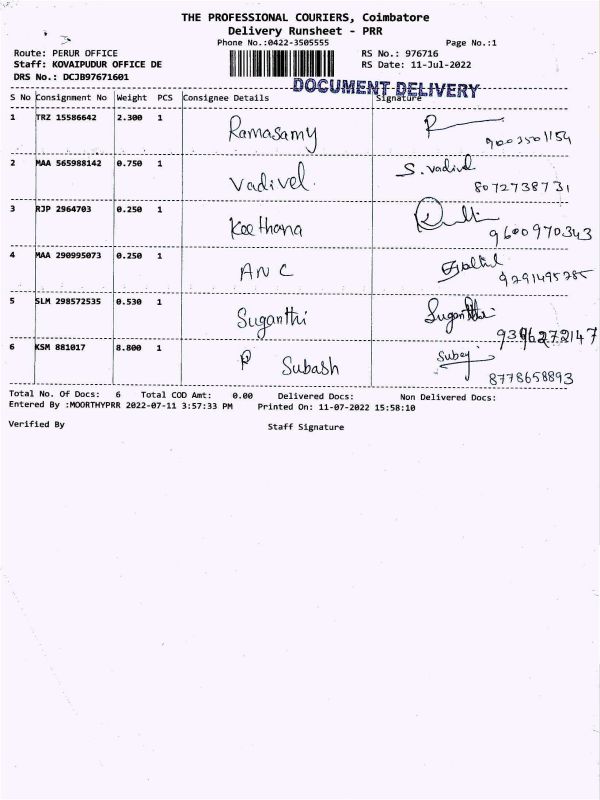 THE PROFESSIONAL COURIERS, Coimbatore
Delivery Runsheet - PRR
Phone No.:0422-3505555 Page No.:1
Route: PERUR OFFICE RS No.: 976716
Staff: KOVAIPUDUR OFFICE DE RS Date: 11-Jul-2022
DRS No.: DCJB97671601
DOCUMENT DELIVERY
S No Consignment No Weight PCS Consignee Details Signature
1 TRZ 15586642 2.300 1 Ramasamy
9003501154
2 MAA 565988142 0.750 1 Vadivel. S. Vadivel
8072738731
3 RJP 2964703 0.250 1 Keethana
9600970343
4 MAA 290995073 0.250 1 ANC
9291495785
5 SLM 298572535 0.530 1 Suganthi Suganthi
6 KSM 881017 8.800 1 Subash
8778658893
Total No. Of Docs: 6 Total COD Amt: 0.00 Delivered Docs: Non Delivered Docs:
Entered By :MOORTHYPRR 2022-07-11 3:57:33 PM Printed On: 11-07-2022 15:58:10
Verified By Staff Signature